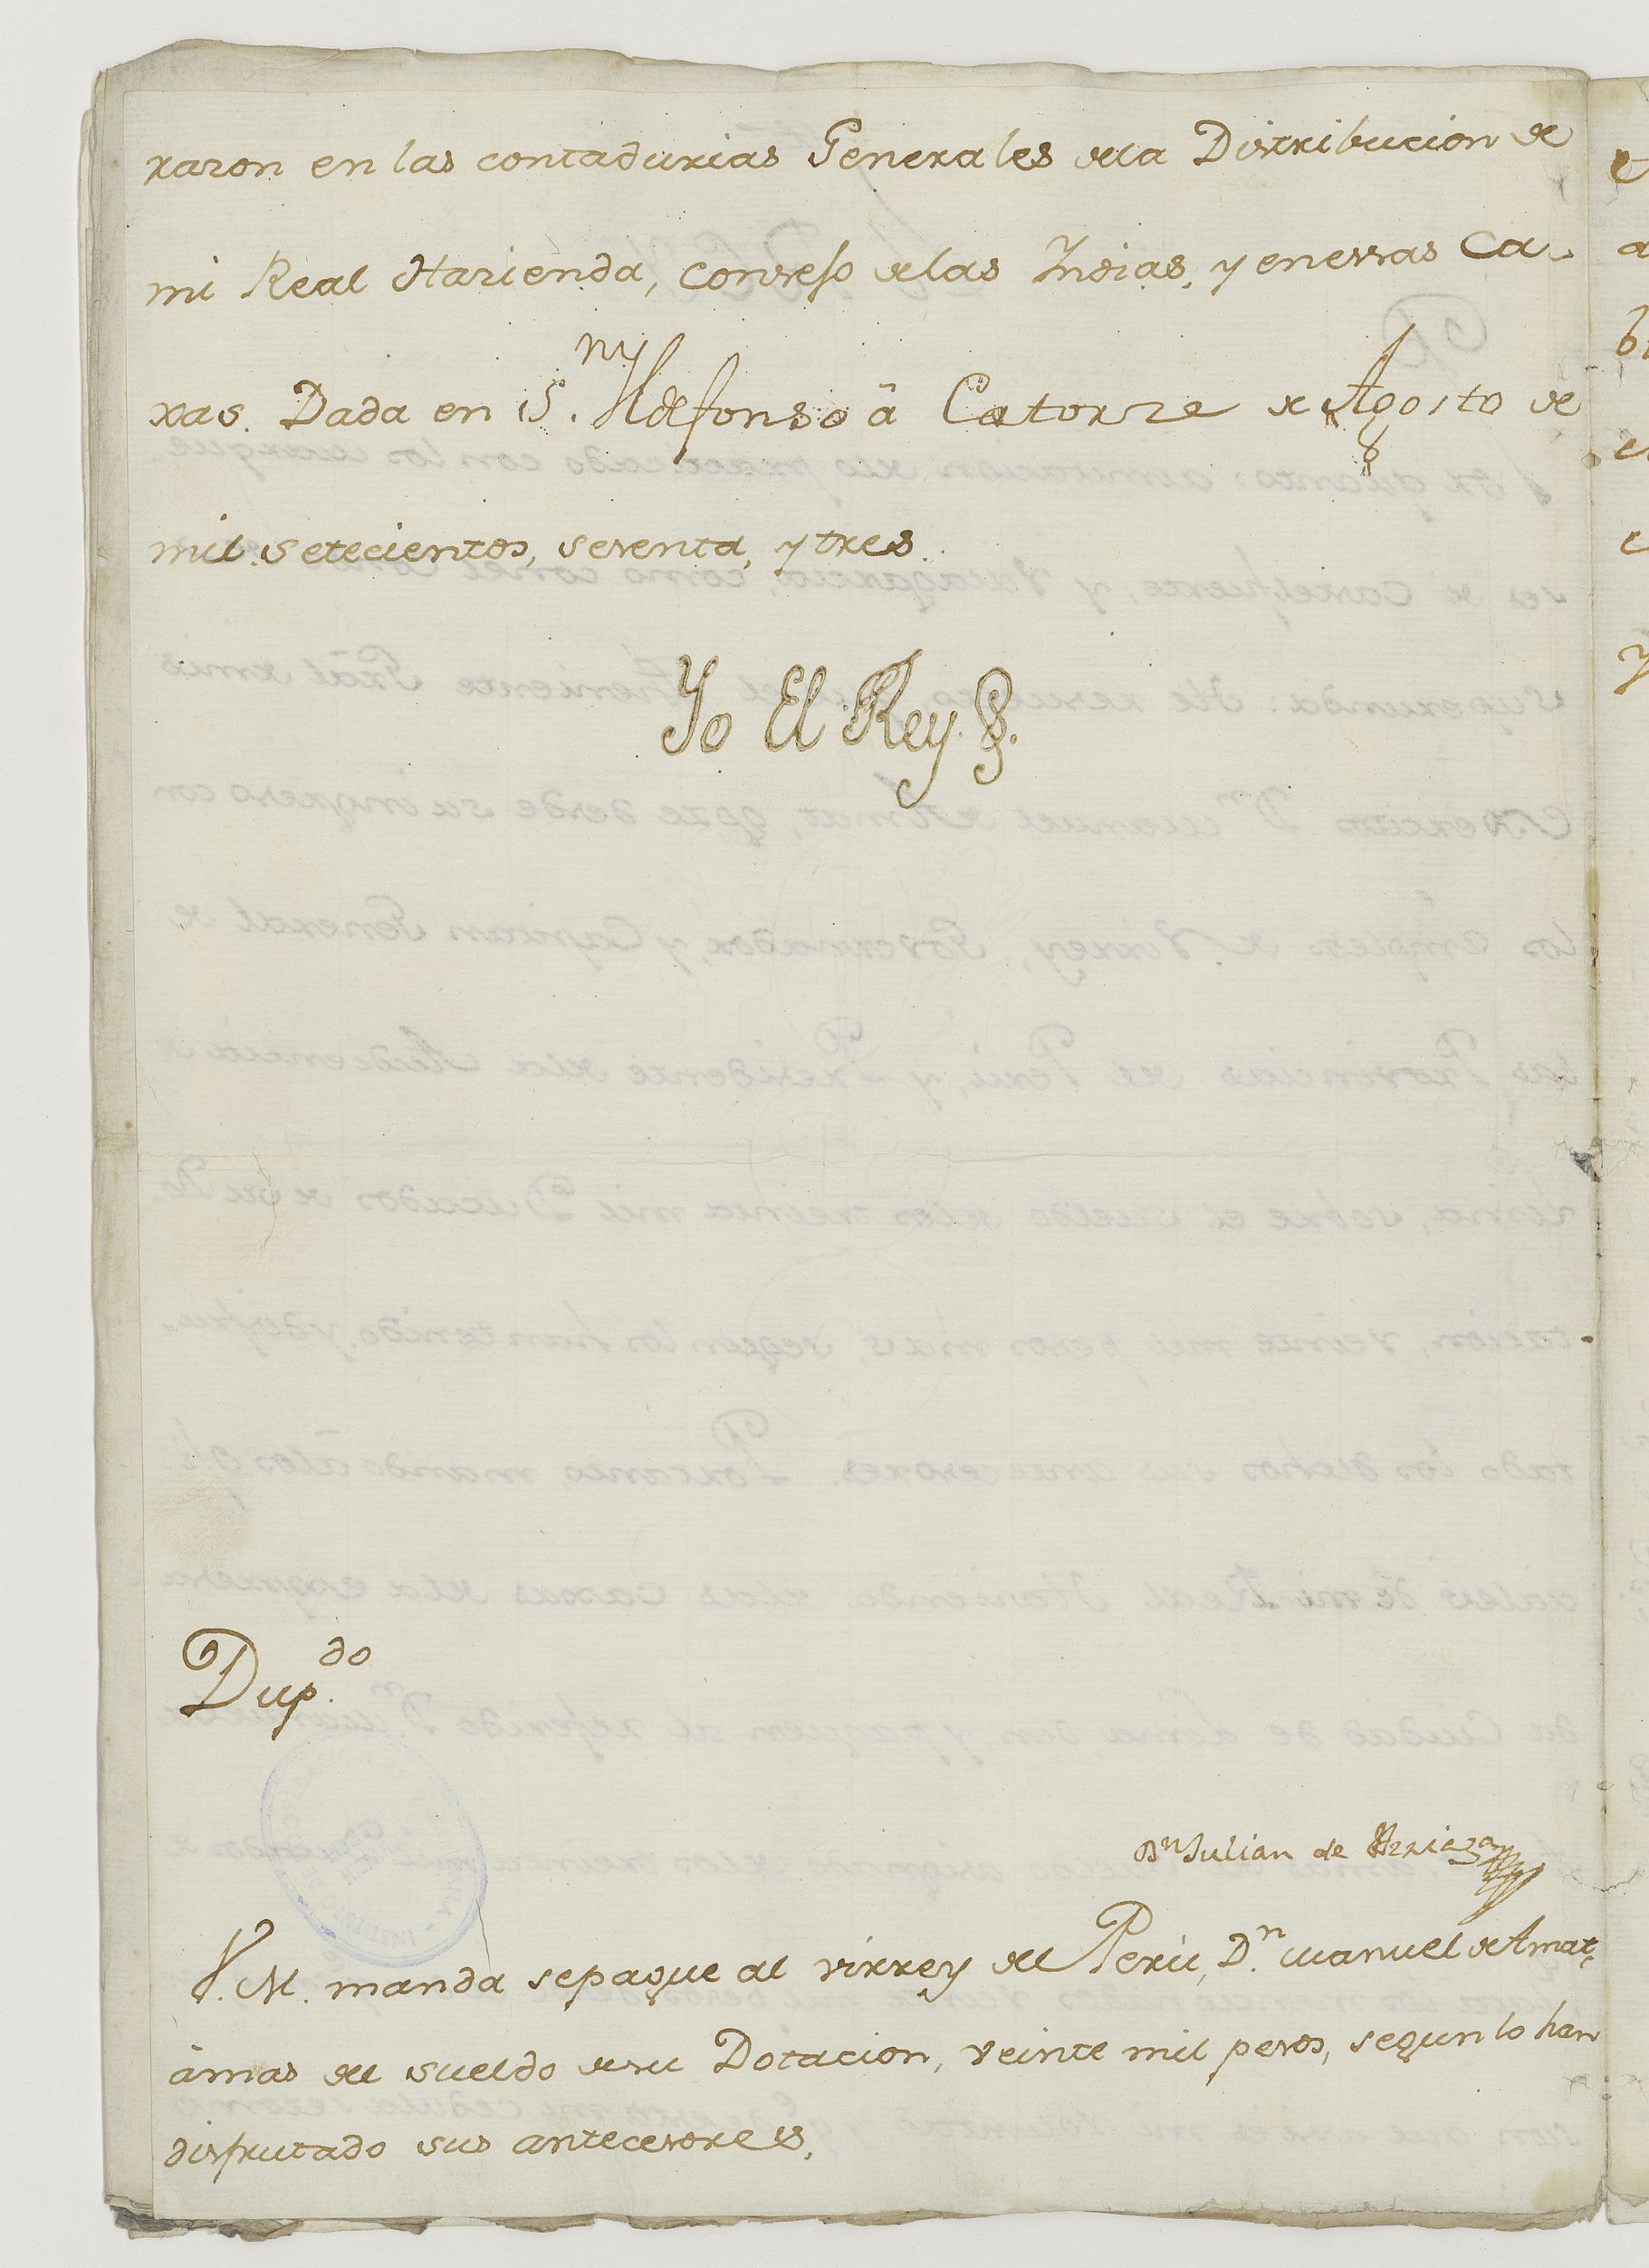 razon en las contadurias Generales de la Distribucion de
mi Real Hazienda, Consejo de las Indias, y en essas Ca-
xas. Dada en S.ⁿ Yldefonso â Catorze de Agosto de
mil setecientos, sesenta, y tres.
Yo El Rey.
Dup.do
Dn Julian de Arriaga
V. M. manda se pague al virrey del Perù, D.n Manuel de Amat,
àmas del sueldo de su Dotacion, veinte mil pesos, segun lo han
disfrutado sus antecesores.